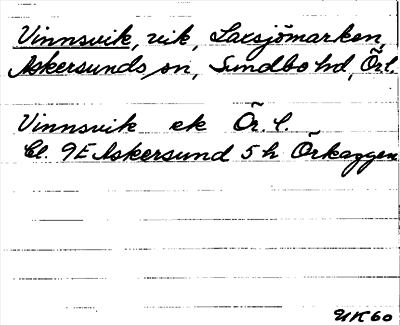 Vinnsvik, vik, Laxsjömarken,
Askersunds sn, Sundbo hd, Ör l.
Vinnsvik ek Ör. l.
Bl. 9E Askersund 5 h Örkaggen
UK60